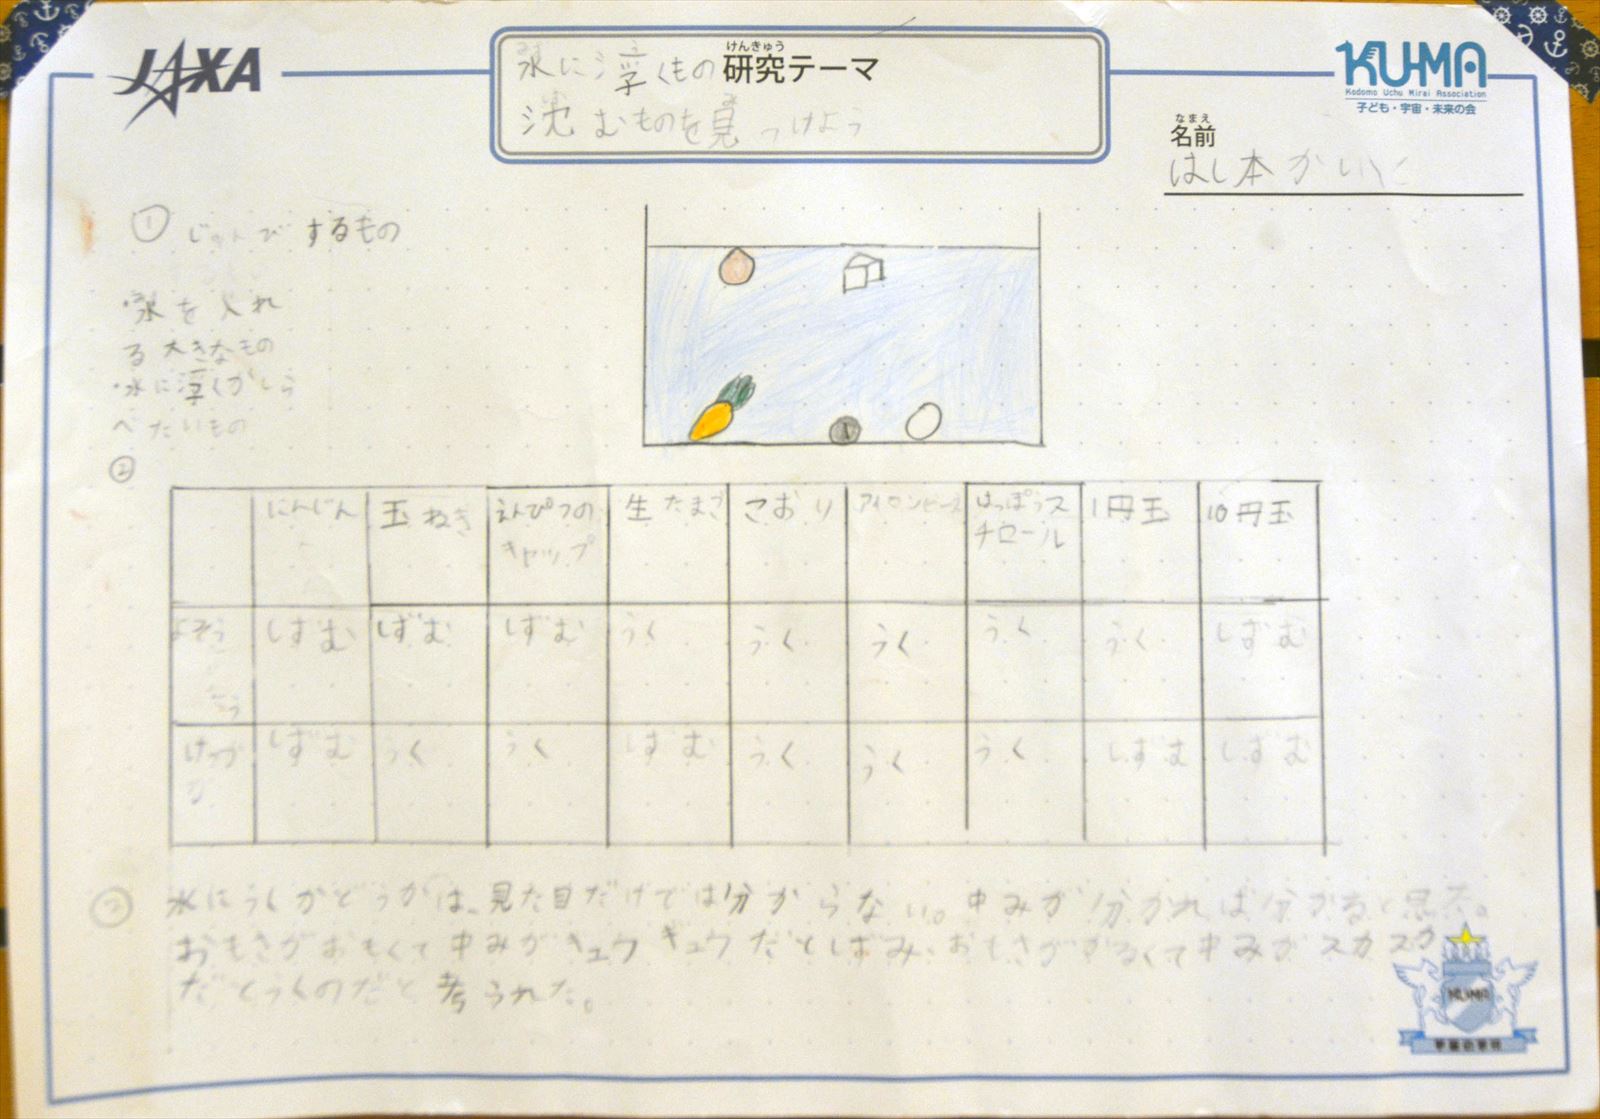 JAXA
けんきゅう
水に浮くもの 研究テーマ
沈むものを見つけよう
KU-MA
Kodomo Uchu Mirai Association
子ども・宇宙・未来の会
なまえ
名前
はし本
① じゅんびするもの
・水を入れ
る大きなもの
・水に浮くかしら
べたいもの
②
にんじん 玉ねぎ えんぴつの 生たまご こおり アイロンビーズ はっぽうス 1円玉 10円玉
キャップ チロール
よそう しずむ しずむ しずむ うく うく うく うく うく しずむ
けっか しずむ うく うく しずむ うく うく うく しずむ しずむ
水にうくかどうかは、見た目だけでは分からない。中みが分かれば分かると思た。
おもさがおもくて中みがギュウギュウだとしずみ、おもさがかるくて中みがスカスカ
だとうくのだと考られた。
KUMA